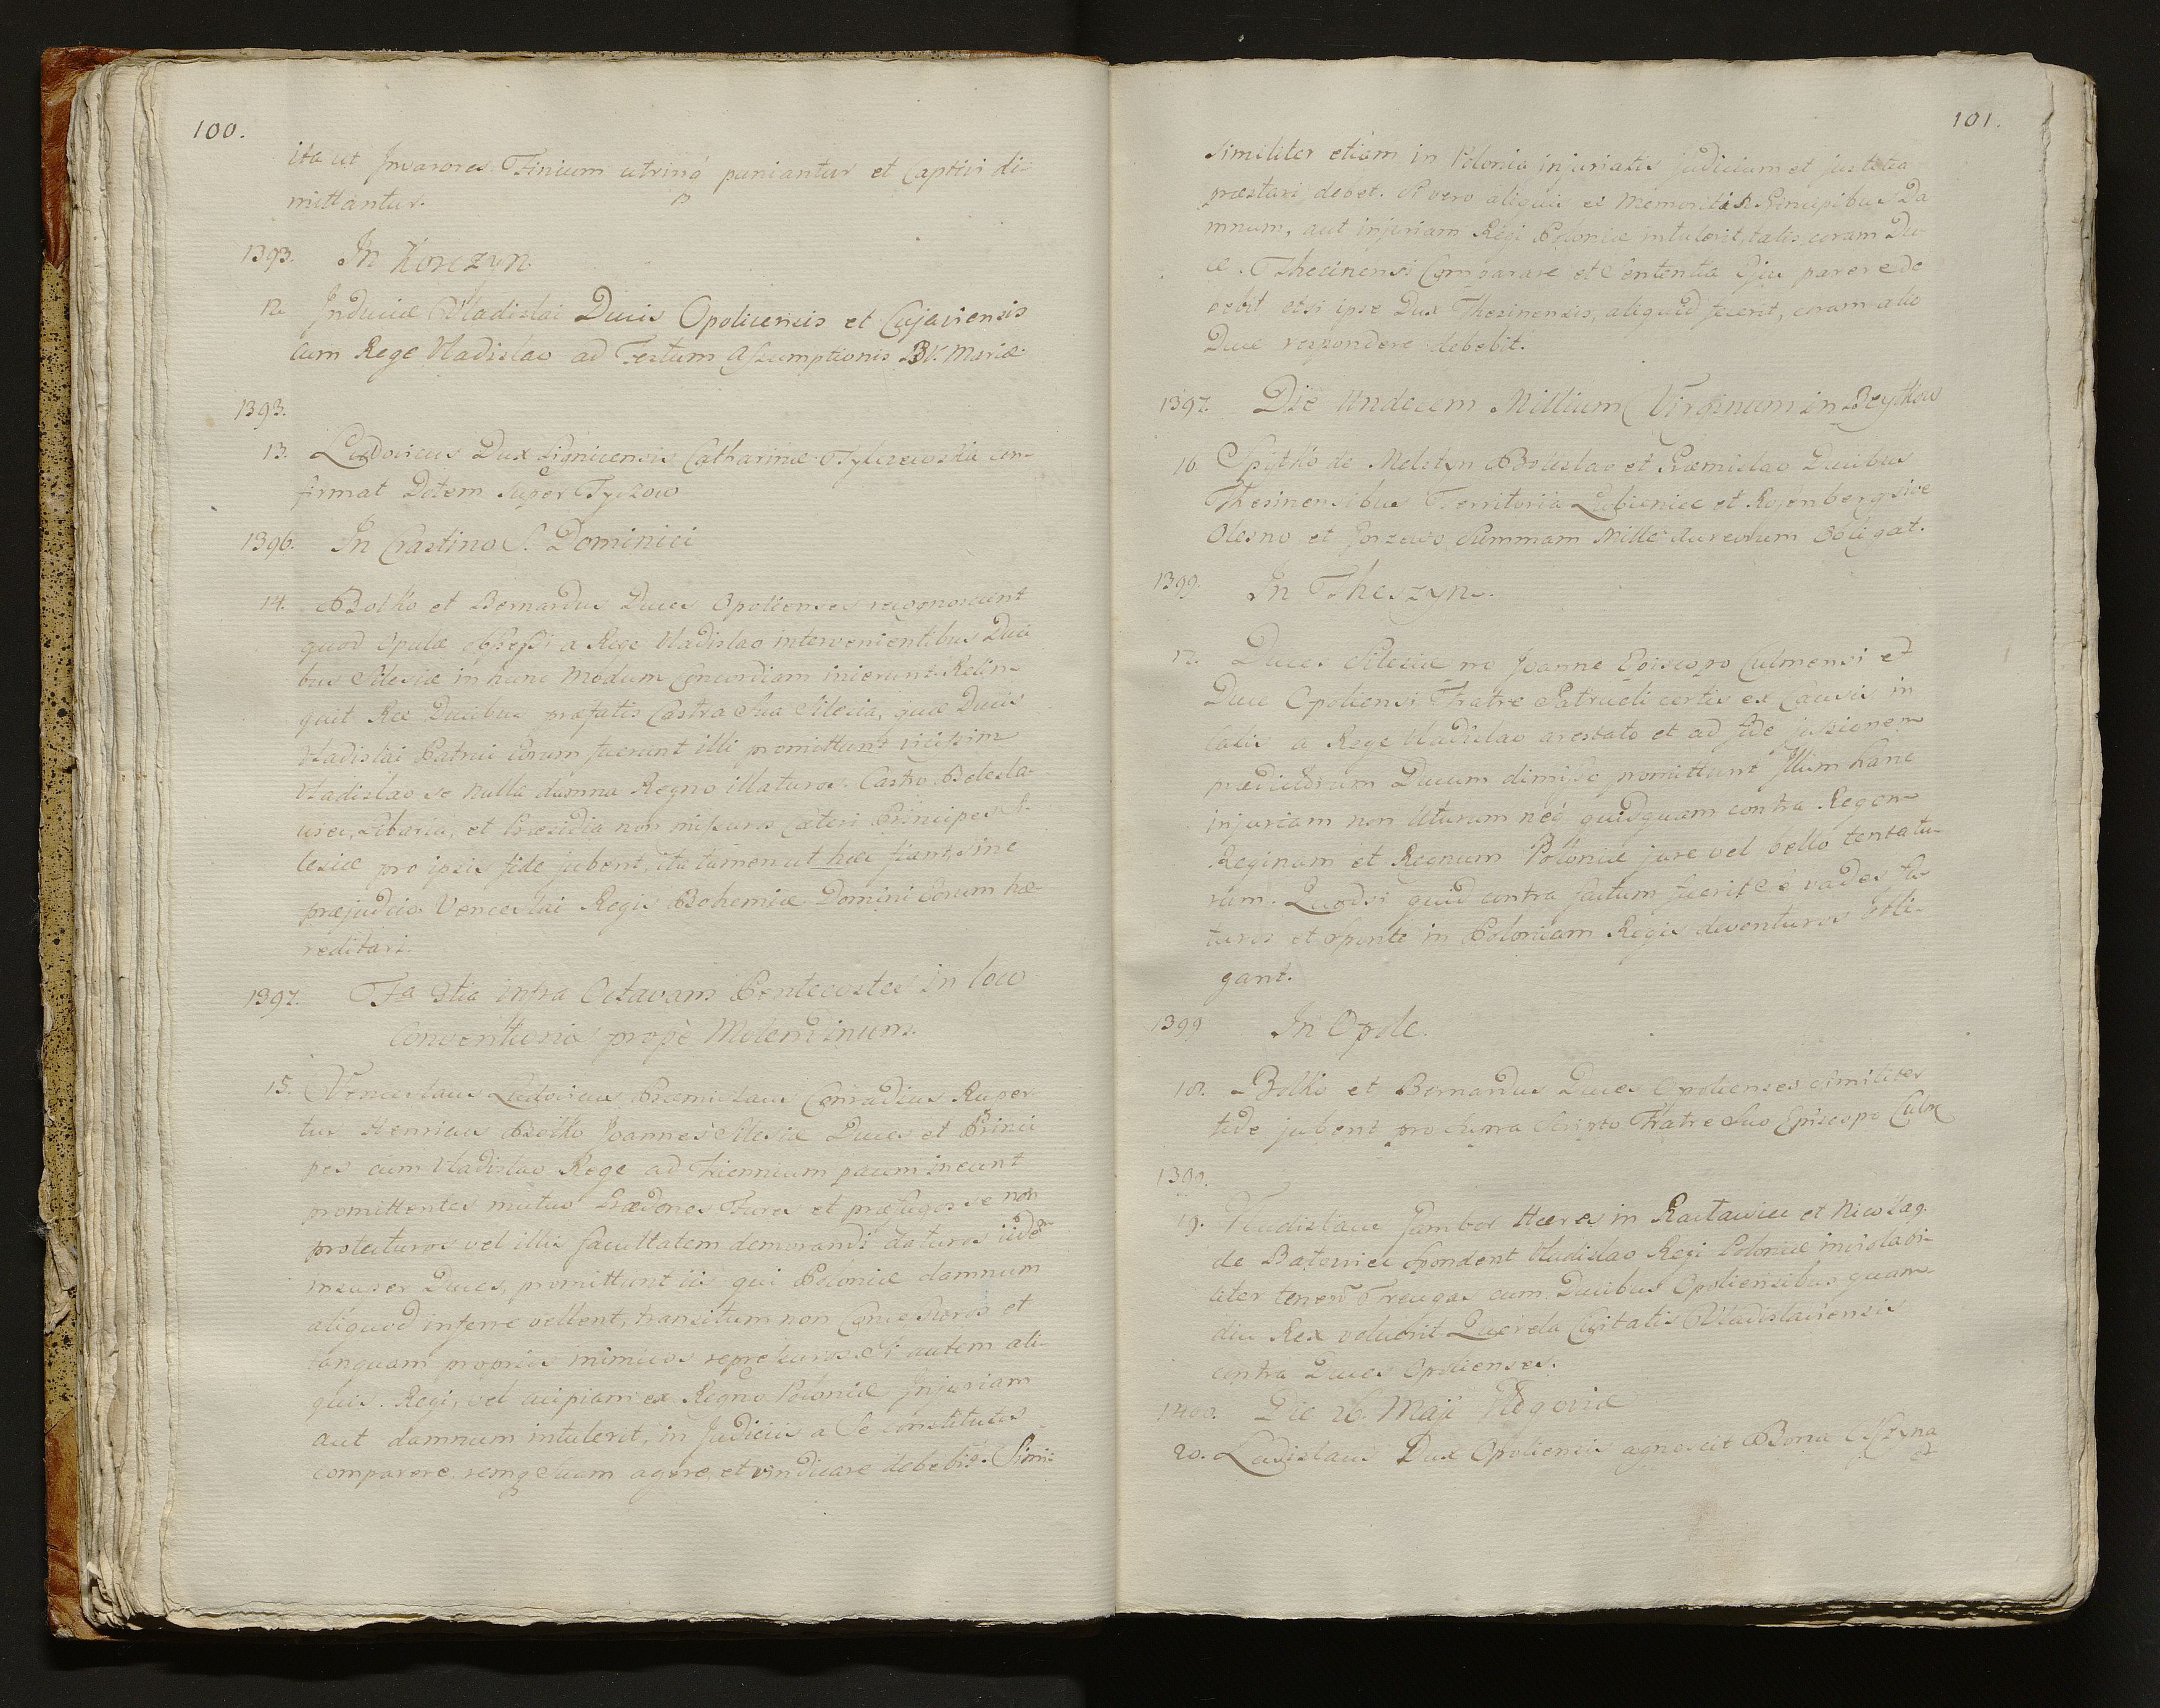 100.
ita ut Invasores Finium utrinq́ puniantur et Captivi di-
mittantur.
1393. In Korczyn.
12. Induciæ Vladislai Ducis Opoliensis et Cujaviensis
cum Rege Vladislao ad Festum Assumptionis BV. Mariæ
1393.
13. Ludovicus Dux Lignicensis Catharinæ con-
firmat Dotem super Tyczow
1396. In Crastino S. Dominici
14. Bolko et Bernardus Duces Opolienses recognoscunt
quod Opulæ obsessi a Rege Vladislao intervenientibus Duci
bus Silesiæ in hunc Modum Concordiam inierunt. Relin-
quit Rex Ducibus præfatis Castra Sua Silesia, quæ Ducis
Vladislai Patrui Eorum fuerunt illi promittunt vicissim
Vladislao se nulla damna Regno illaturos. Castro Belesla-
uiec, Libaria, et Præsidia non missuros Cæteri Principes Si-
lesiæ pro ipsis fide jubent, ita tamen ut hæc fiant, sine
præjudicio Venceslai Regis Bohemiæ Domini Eorum hæ-
reditari.
1397. Fa 3tia intra Octavam Pentecostes in loco
Conventionis propè Molendinum.
15. Venceslaus Ludovicus Præmislaus Conradius Ruper
tus Henricus Bolko Joannes Silesiæ Duces et Princi
pes cum Vladislao Rege ad Triennium pacem ineunt
promittentes mutuo Prædones Fures et profugos se non
protecturos vel illis facultatem demorandi daturos iidē
insuper Duces, promittunt iis qui Poloniæ damnum
aliquod inferre vellent, transitum non Concessuros et
tanquam proprios inimicos Si autem ali-
quis. Regi, vel cuipiam ex Regno Poloniæ Injuriam
aut damnum intulerit, in Judiciis a Se constitutis
comparere, remq Suam agere, et vindicare debebit. Simi-
101.
similiter etiam in Polonia injuriatis judicium et justitia
præstari debet. Si vero aliquis ex Memoratis Principibus Da
mnum, aut injuriam Regi Poloniæ intulerit, talis coram Du
ce. Thecinensi Comparare et Sententiæ Ejus parere de
bebit etsi ipse Dux Thesinensis, aliquid fecerit, coram alio
Duce respondere debebit.
1397. Die Undecem Millium Virginum in
16. Spytko de Melstyn Boleslao et Præmislao Ducibus
Thesinensibus Territoria Lubieniec et Rosenberg sive
Olesno et Summam Mille Aureorum Obligat.
1399. In Theszyn.
17. Duces Silesiæ pro Joanne Episcopo Culmensi et
Duce Opoliensi Fratre Patrueli certis ex Causis in
a Rege Vladislao arestato et ad fide jussionem
prædictorum Ducum dimisso promittunt Illum hanc
injuriam non Uturum néq́ quidquam contra Regem
Reginam et Regnum Poloniæ jure vel bello tentatu-
rum. Quodsi quid contra factum fuerit Se vades
turos et sponte in Poloniam Regis deventuros obli-
gant.
1399 In Opole.
18. Bolko et Bernardus Duces Opolienses similiter
fide jubent pro supra scripto Fratre Suo Episcopo Culm
1399.
19. Vladislaus Jambor Hæres in Ractawice et Nicolag
de Batowice spondent Vladislao Regi Poloniæ inviolabi-
liter tenerē Treugas cum Ducibus Opoliensibus quam
diu Rex voluerit. Querela Civitatis Vladislaviensis
contra Duces Opolienses.
1400. Die 26. Maji
20. Ladislaus Dux Opoliensis agnoscit Bona
et